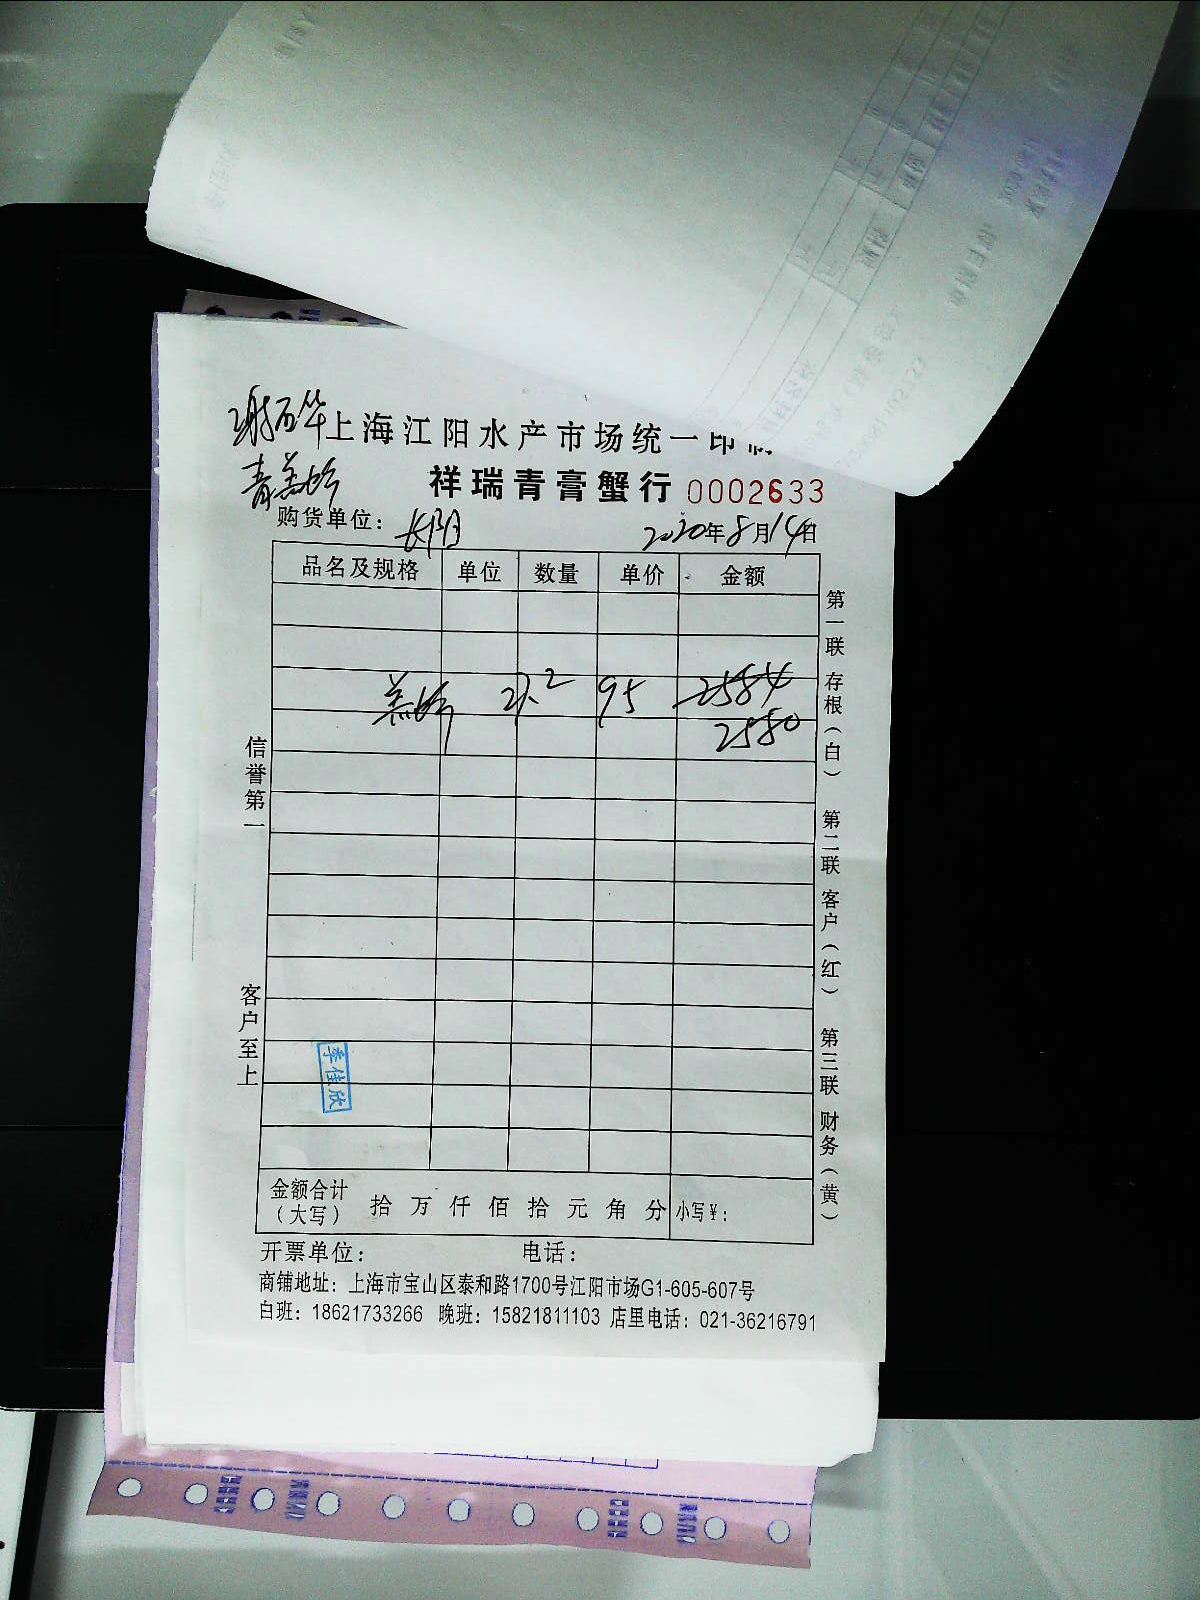 上海江阳水产市场统一印制
祥瑞青膏蟹行 0002633
购货单位： 长阳 2020年8月14日
品名及规格 单位 数量 单价 金额
27.2 95 2584
2580
信誉第一
客户至上
第一联 存根（白） 第二联 客户（红） 第三联 财务（黄）
季佳欣
金额合计（大写） 拾 万 仟 佰 拾 元 角 分 小写¥：
开票单位： 电话：
商铺地址：上海市宝山区泰和路1700号江阳市场G1-605-607号
白班：18621733266 晚班：15821811103 店里电话：021-36216791